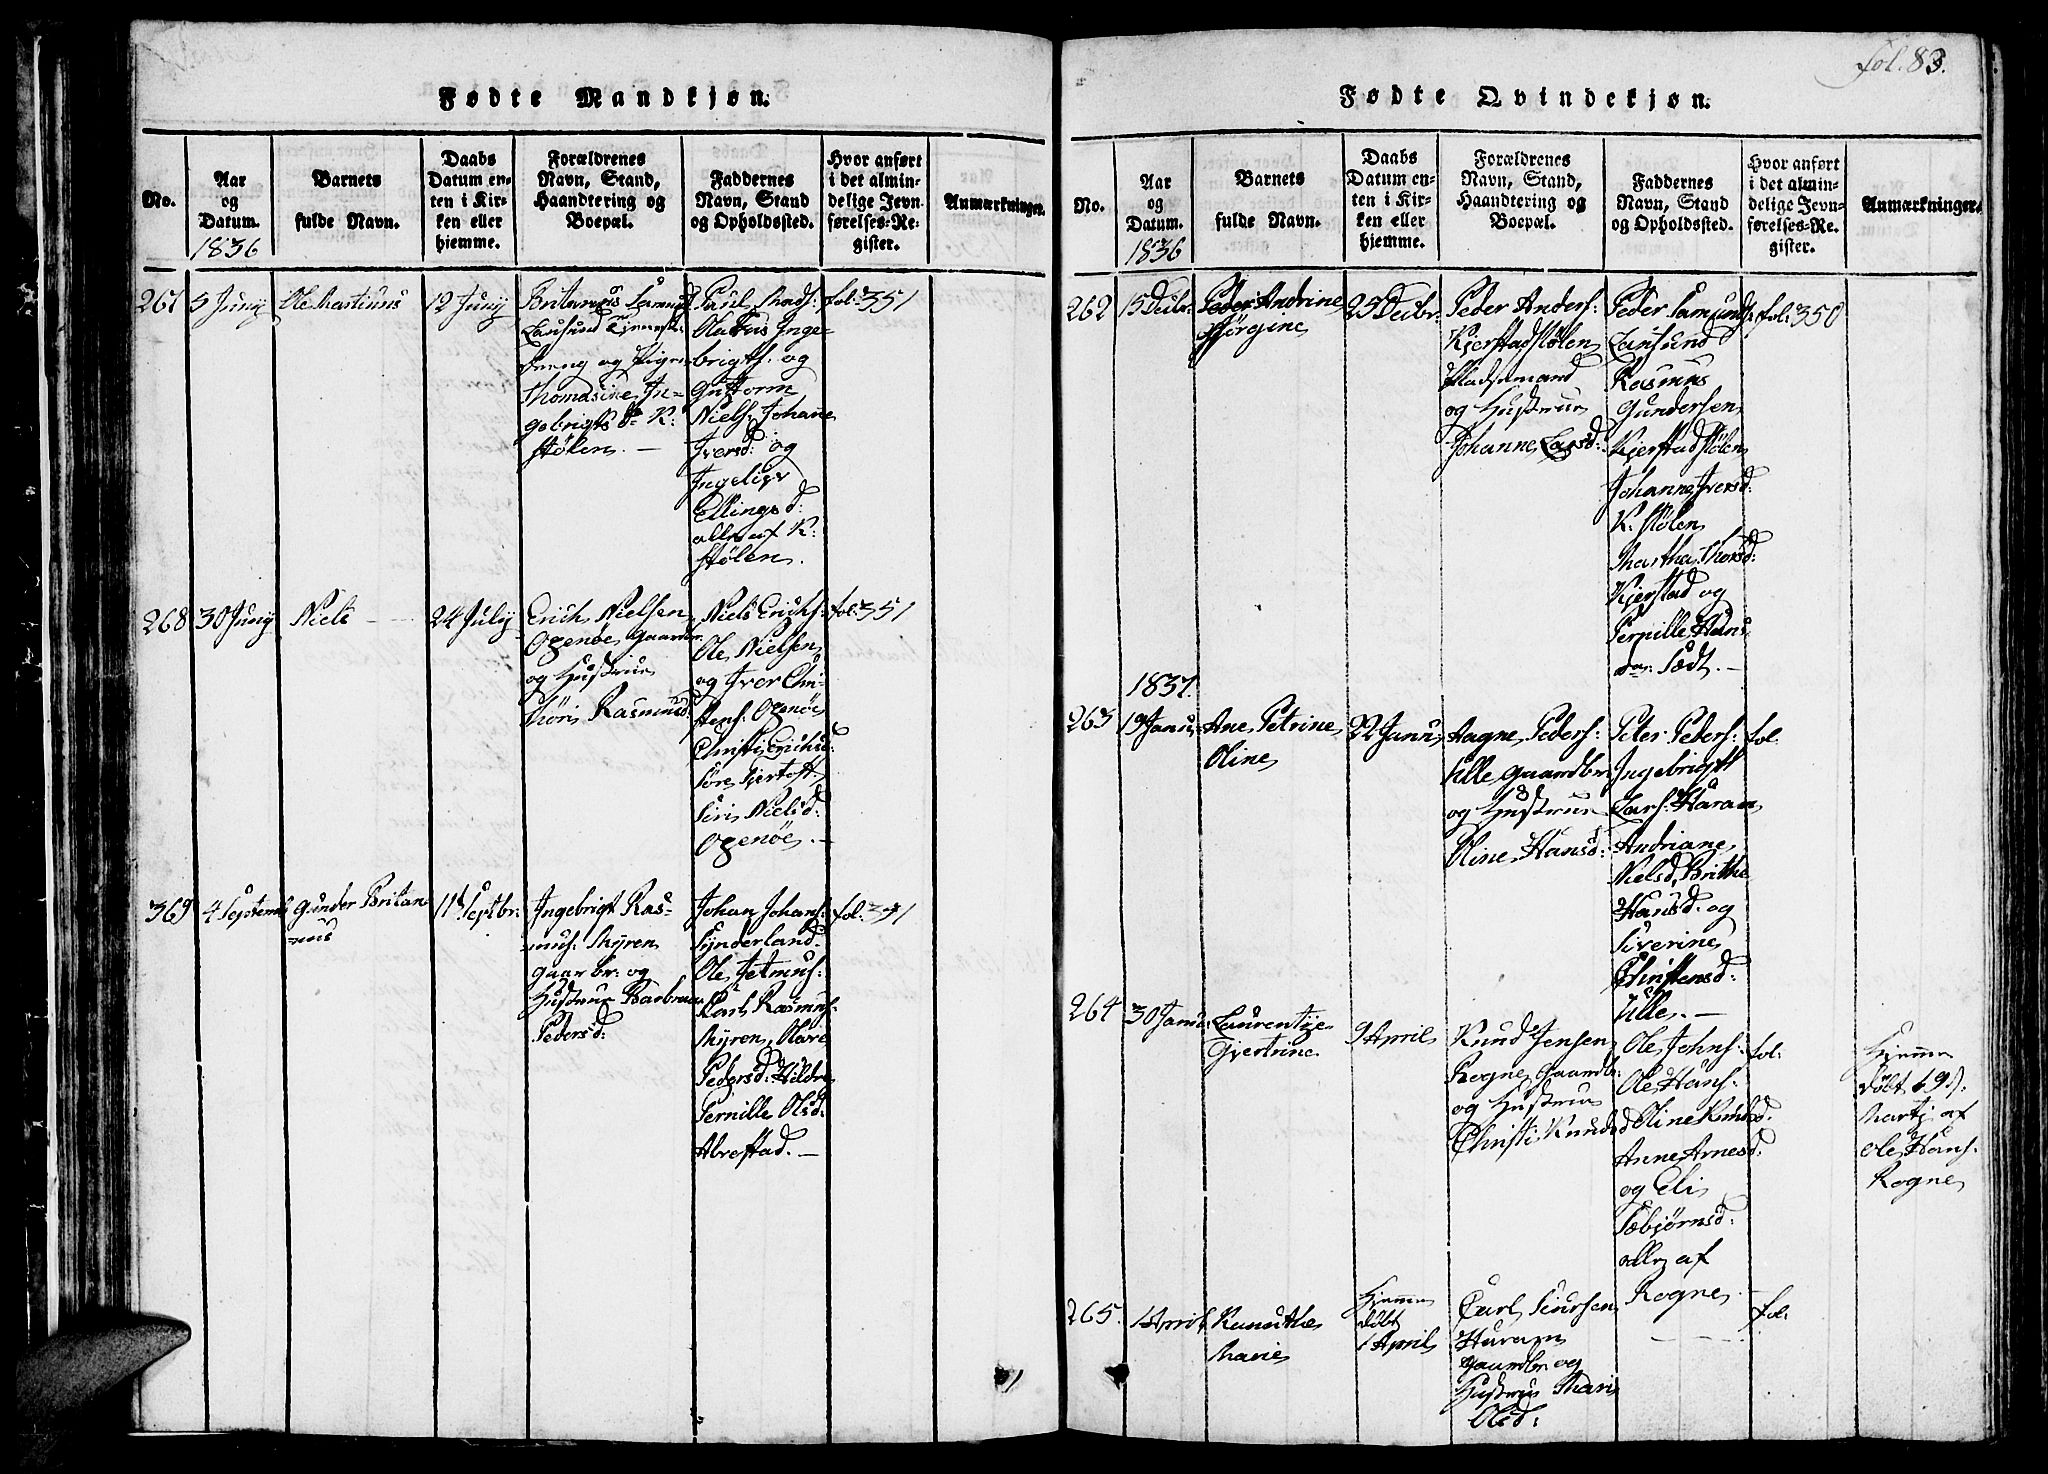 fol. 83.
Fødte Mandkjøn.
No.
Aar
og
Datum.
1836
Barnets
fulde Navn.
Daabs
Datum en-
ten i Kir-
ken eller
hjemme.
Forældrenes
Navn, Stand,
Haandtering og
Boepæl.
Faddernes
Navn, Stand
og Opholdssted.
Hvor anført
i det almin-
delige Jevn-
førelses-Re-
gister.
Anmærkninger.
267
5 Juny
Ole Martinus
12 Juny
Dreng og Pigen
Thomasine In-
gebrigts dr K:
stølen. —
Paul Mads:
Olaus Inge-
brigts. og
Guttorm
Niels: Johanne
Iversd: og
Ingelier
Ellingsd:
alle af K:
stølen.
fol: 351
268
30 Juny
Niels
24 July
Erich Nielsen
Ogenøe Gaardbr.
og Hustrue
Thöri Rasmusd:
Niels Erichs:
Ole Nielsen
og Iver Chri-
stens: Ogenøe
Christi Erichsd:
Søre
Siri Nielsd:
Ogenøe. —
fol: 351
369
4 Septemb
Gunder Britan
nus
11t Septbr:
Ingebrigt Ras-
mus: Myren
gaarbr: og
Hustrue Barbroe
Pedersd:
Johan Johans:
Synderland.
Ole Jetmus:
Carl Rasmus:
Myren, Olave
Pedersd: Hildre
Pernille Olsd:
Alvestad. —
fol: 351
Fødte Qvindekjøn.
No.
Aar
og
Datum.
1836
Barnets
fulde Navn.
Daabs
Datum en-
ten i Kir-
ken eller
hjemme.
Forældrenes
Navn, Stand,
Haandtering og
Boepæl.
Faddernes
Navn, Stand
og Opholdssted.
Hvor anført
i det almin-
delige Jevn-
førelses-Re-
gister.
Anmærkninger.
262
15 Decbr.
Peder Andrine
Jørgine
25 Decbr:
Peder Anders:
Kjerstadstølen
Pladsemand
og Hustrue
Johanne Larsd:
Peder Samunds:
Longsund
Rasmus
Gundersen
Kjerstadstølen
Johanne Iversd:
K: stølen
Martha Thorsd:
Kjerstad og
Pernille Hans
dr: Sædt. —
fol: 350
1837.
263
19 Janu:
Ane Petrine
Oline
22 Janu:
Aagne Peders:
Ulle Gaardbr
og Hustrue
Oline Hansd:
Peter Peders:
Ingebrigt
Lars: Haram
Andriane
Nielsd, Brithe
Hansd: og
Siverine
Christensd:
Ulle. —
fol:
264
30 Janu:
Laurentze
Gjertrine
9 April
Knud Jensen
Rogne Gaardb:
og Hustrue
Christi Knudsd
Ole Johns:
Ole Hans:
Oline Knudsd:
Anne Arnesd:
og Eli
Sæbjørnsd:
alle af
Rogne. —
fol:
Hjemme
døbt d 9de
Martj af
Ole Hans:
Rogne
265.
1 April
Knuthe
Marie
Hjemme
døbt
1 April
Carl Siursen
Haram
gaardbr og
Hustrue Mari
Olsd:
fol: